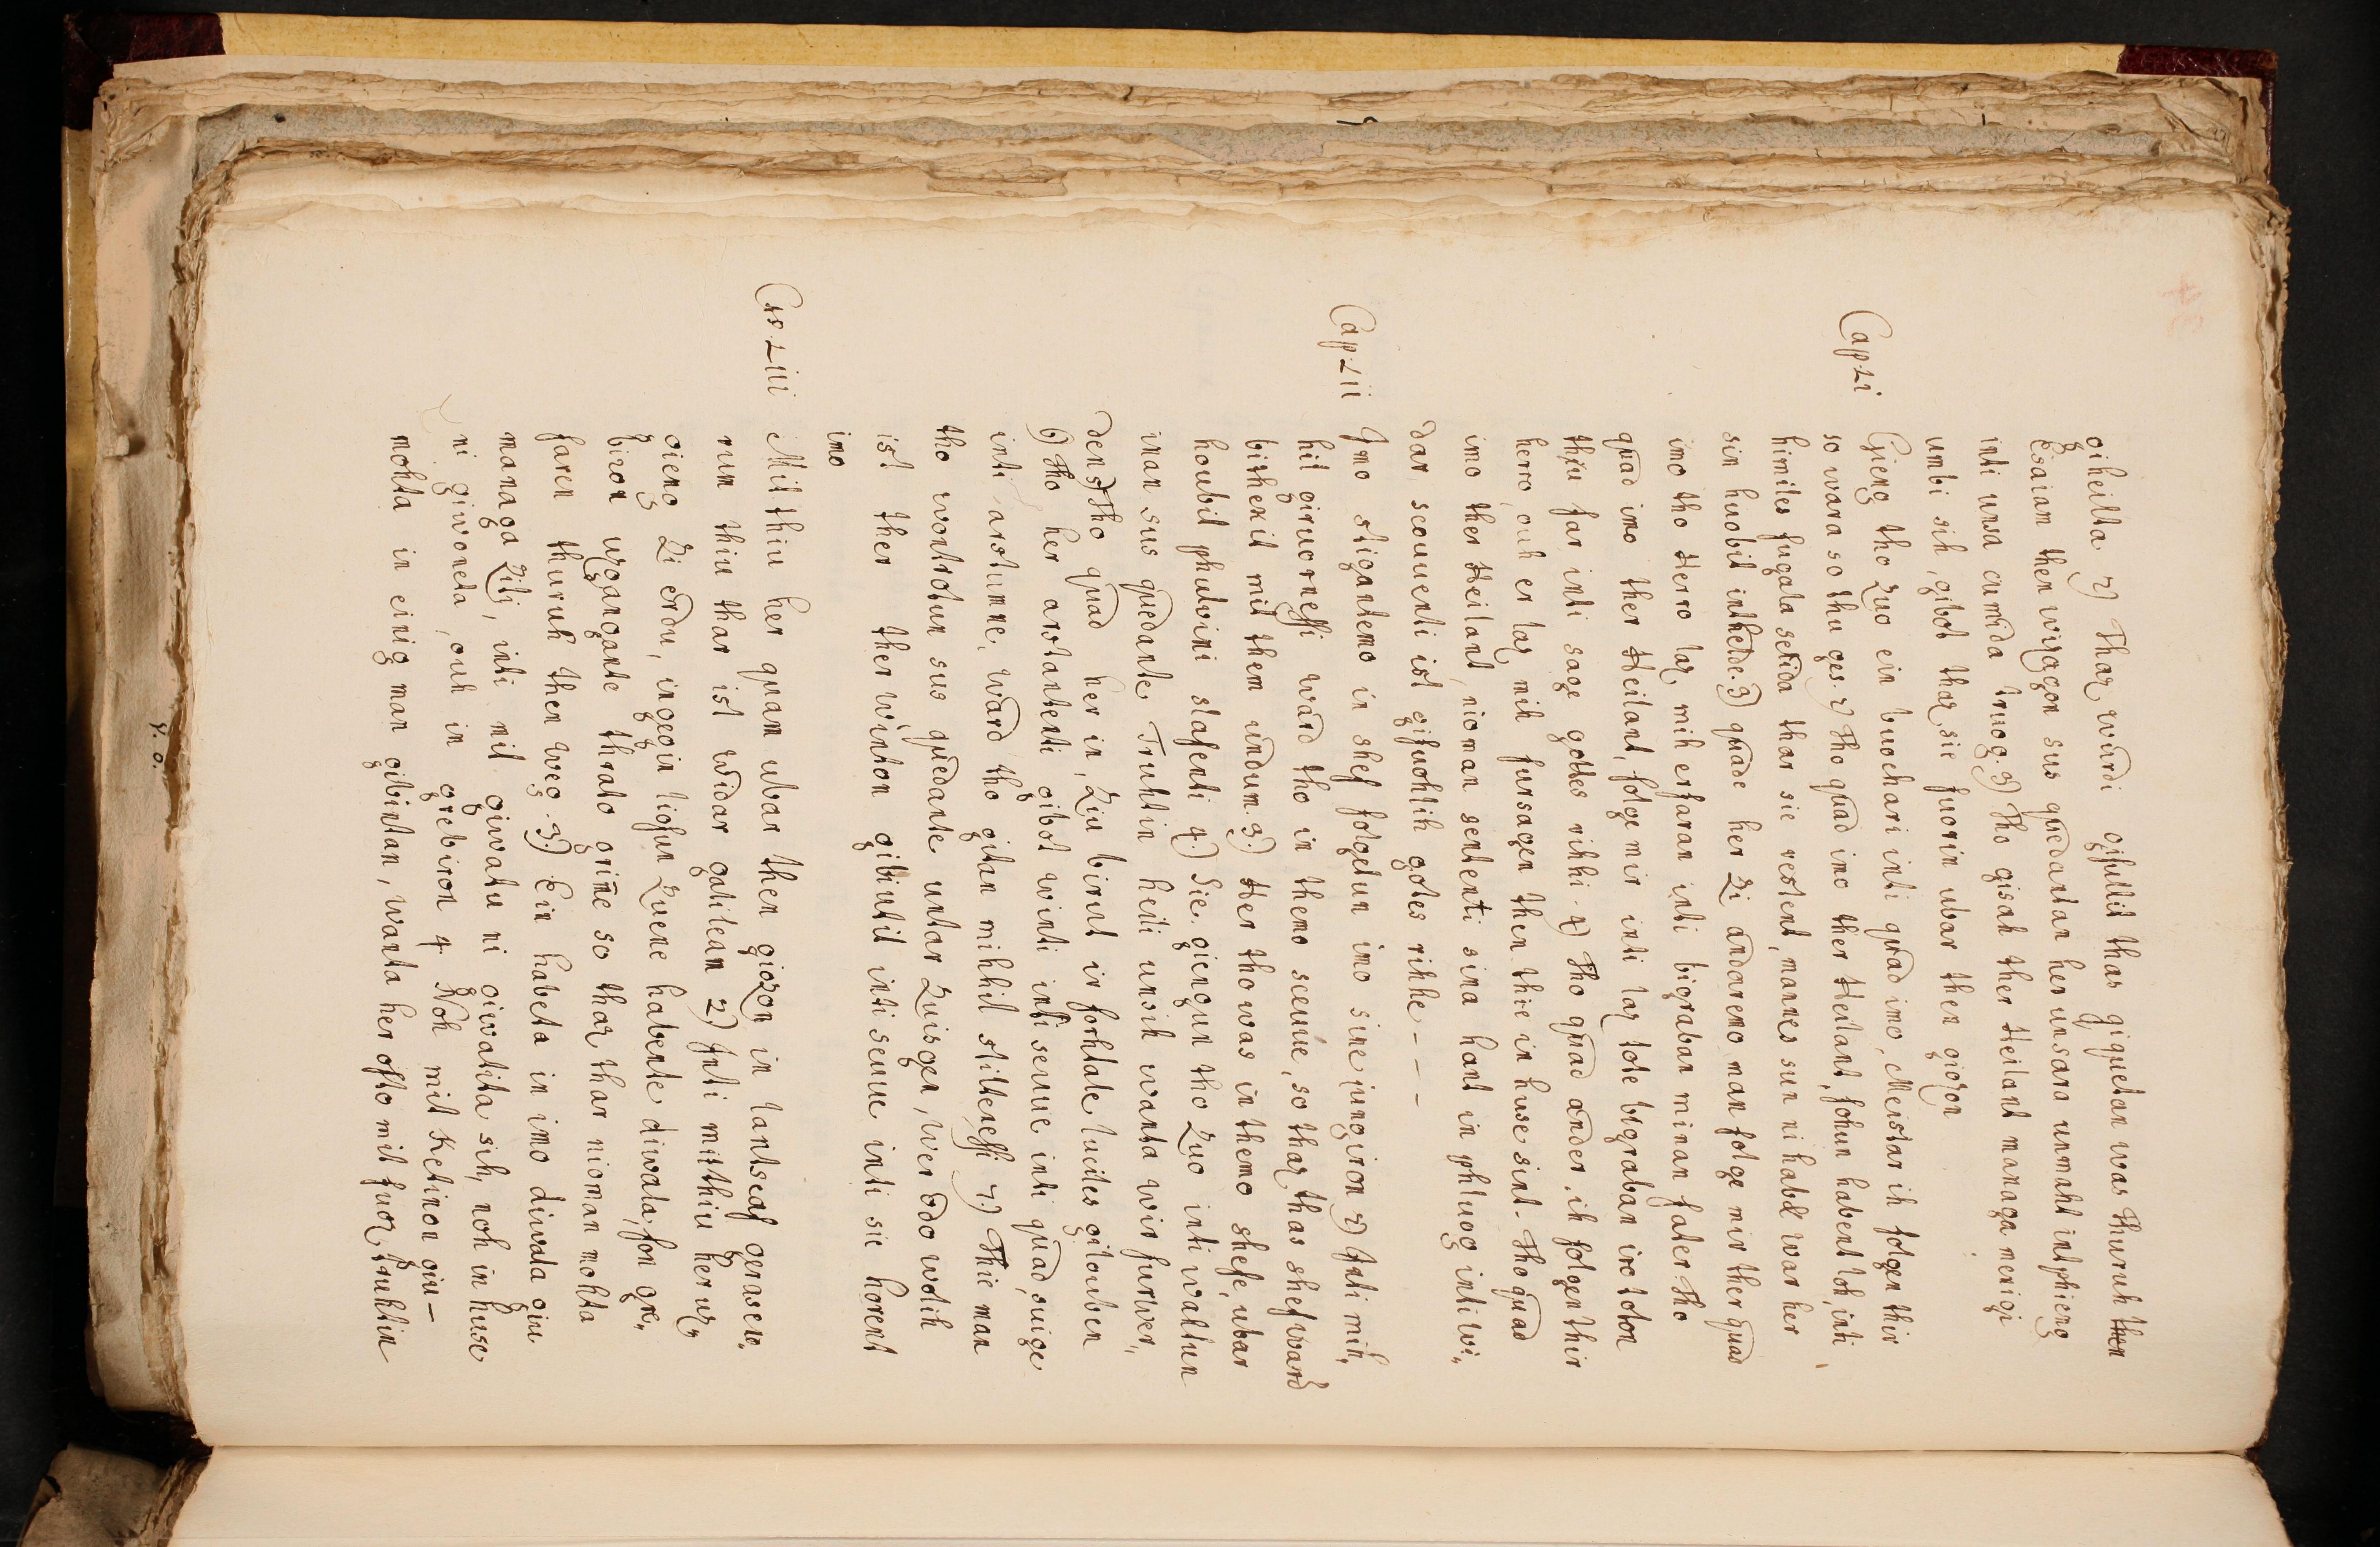 giheilta 2) Thaz wurdi gifullit thas giquetan was thuruh then
Esaiam then wizagon sus quedantan her unsara unmaht intphieng
inti unsa cumida truog. 3) Tho gisah ther Heilant managa menigi
umbi sih, gibot thaz sie fuorin ubar then giozon
Cap. Li Gieng tho zuo ein buochari inti quad imo, Meistar ih folgen thir
so wara so thu ges. 2) Tho quad imo ther Heilant, fohun habent loh, inti
himiles fugala selida thar sie restent, mannes sun ni habet war her
sin huobit inthelde. 3) quade her Zi andaremo man folge mir ther quad
imo tho Herro laz mih erfaran inti bigraban minan fater. Tho
quad imo ther Heilant, folge mir inti laz tote bigraban iro toton
thiu far inti sage gottes rihhi. 4) Tho quad ander, ih folgen thir
herro, ouh er laz mih fursagen then thie in huse sint. Tho quad
imo ther Heilant, nioman sententi sina hant in phluog inti wi„
dar scouuenti ist gifuohlih gotes rihhe - - -
Cap. Lii Imo stigantemo in shef folgetun imo sine jungiron 2) Inti mih„
hil giruornessi ward tho in themo sceuue, so thaz thas shef ward
bithekit mit them undum. 3.) Her tho was in themo shefe, ubar
houbit phulwini slafenti 4.) Sie giengun tho Zuo inti waltun
inan sus quedante Truhtin heili unsih wanta wir furwer„
den 5) Tho quad her in, Ziu birut ir forhtale luciles gilouben
6) Tho her arstantenti gibot winti inti seuue inti quad, suige
inti arstumne, ward tho gitan mihhil stiltenessi 7.) Thie man
tho wontrotun sus quedante untar Zuisgen, Wer odo wolih
ist ther ther winton gibiutit inti seuue inti sie horent
imo
Cap. Liii Mit thiu her quam ubar then giozon in lantscaf geraseno„
rum thiu thar ist widar galileam 2) Inti mitthiu her uz„
gieng Zi erdu, ingegin liofun Zuene habente diwala, fon gre„
biron uzgangante thrato grim̄e so thaz thar nioman mohta
faren thuruh then weg. 3.) Ein habeta in imo diwala giu
managa Zitj, inti mit giwatu ni giwatita sih, noh in huse
ni giwoneta, ouh in grebiron 4. Noh mit Ketinon giu-
mohta in einig man gibintan, wanta her ofto mit fuoz truhtin